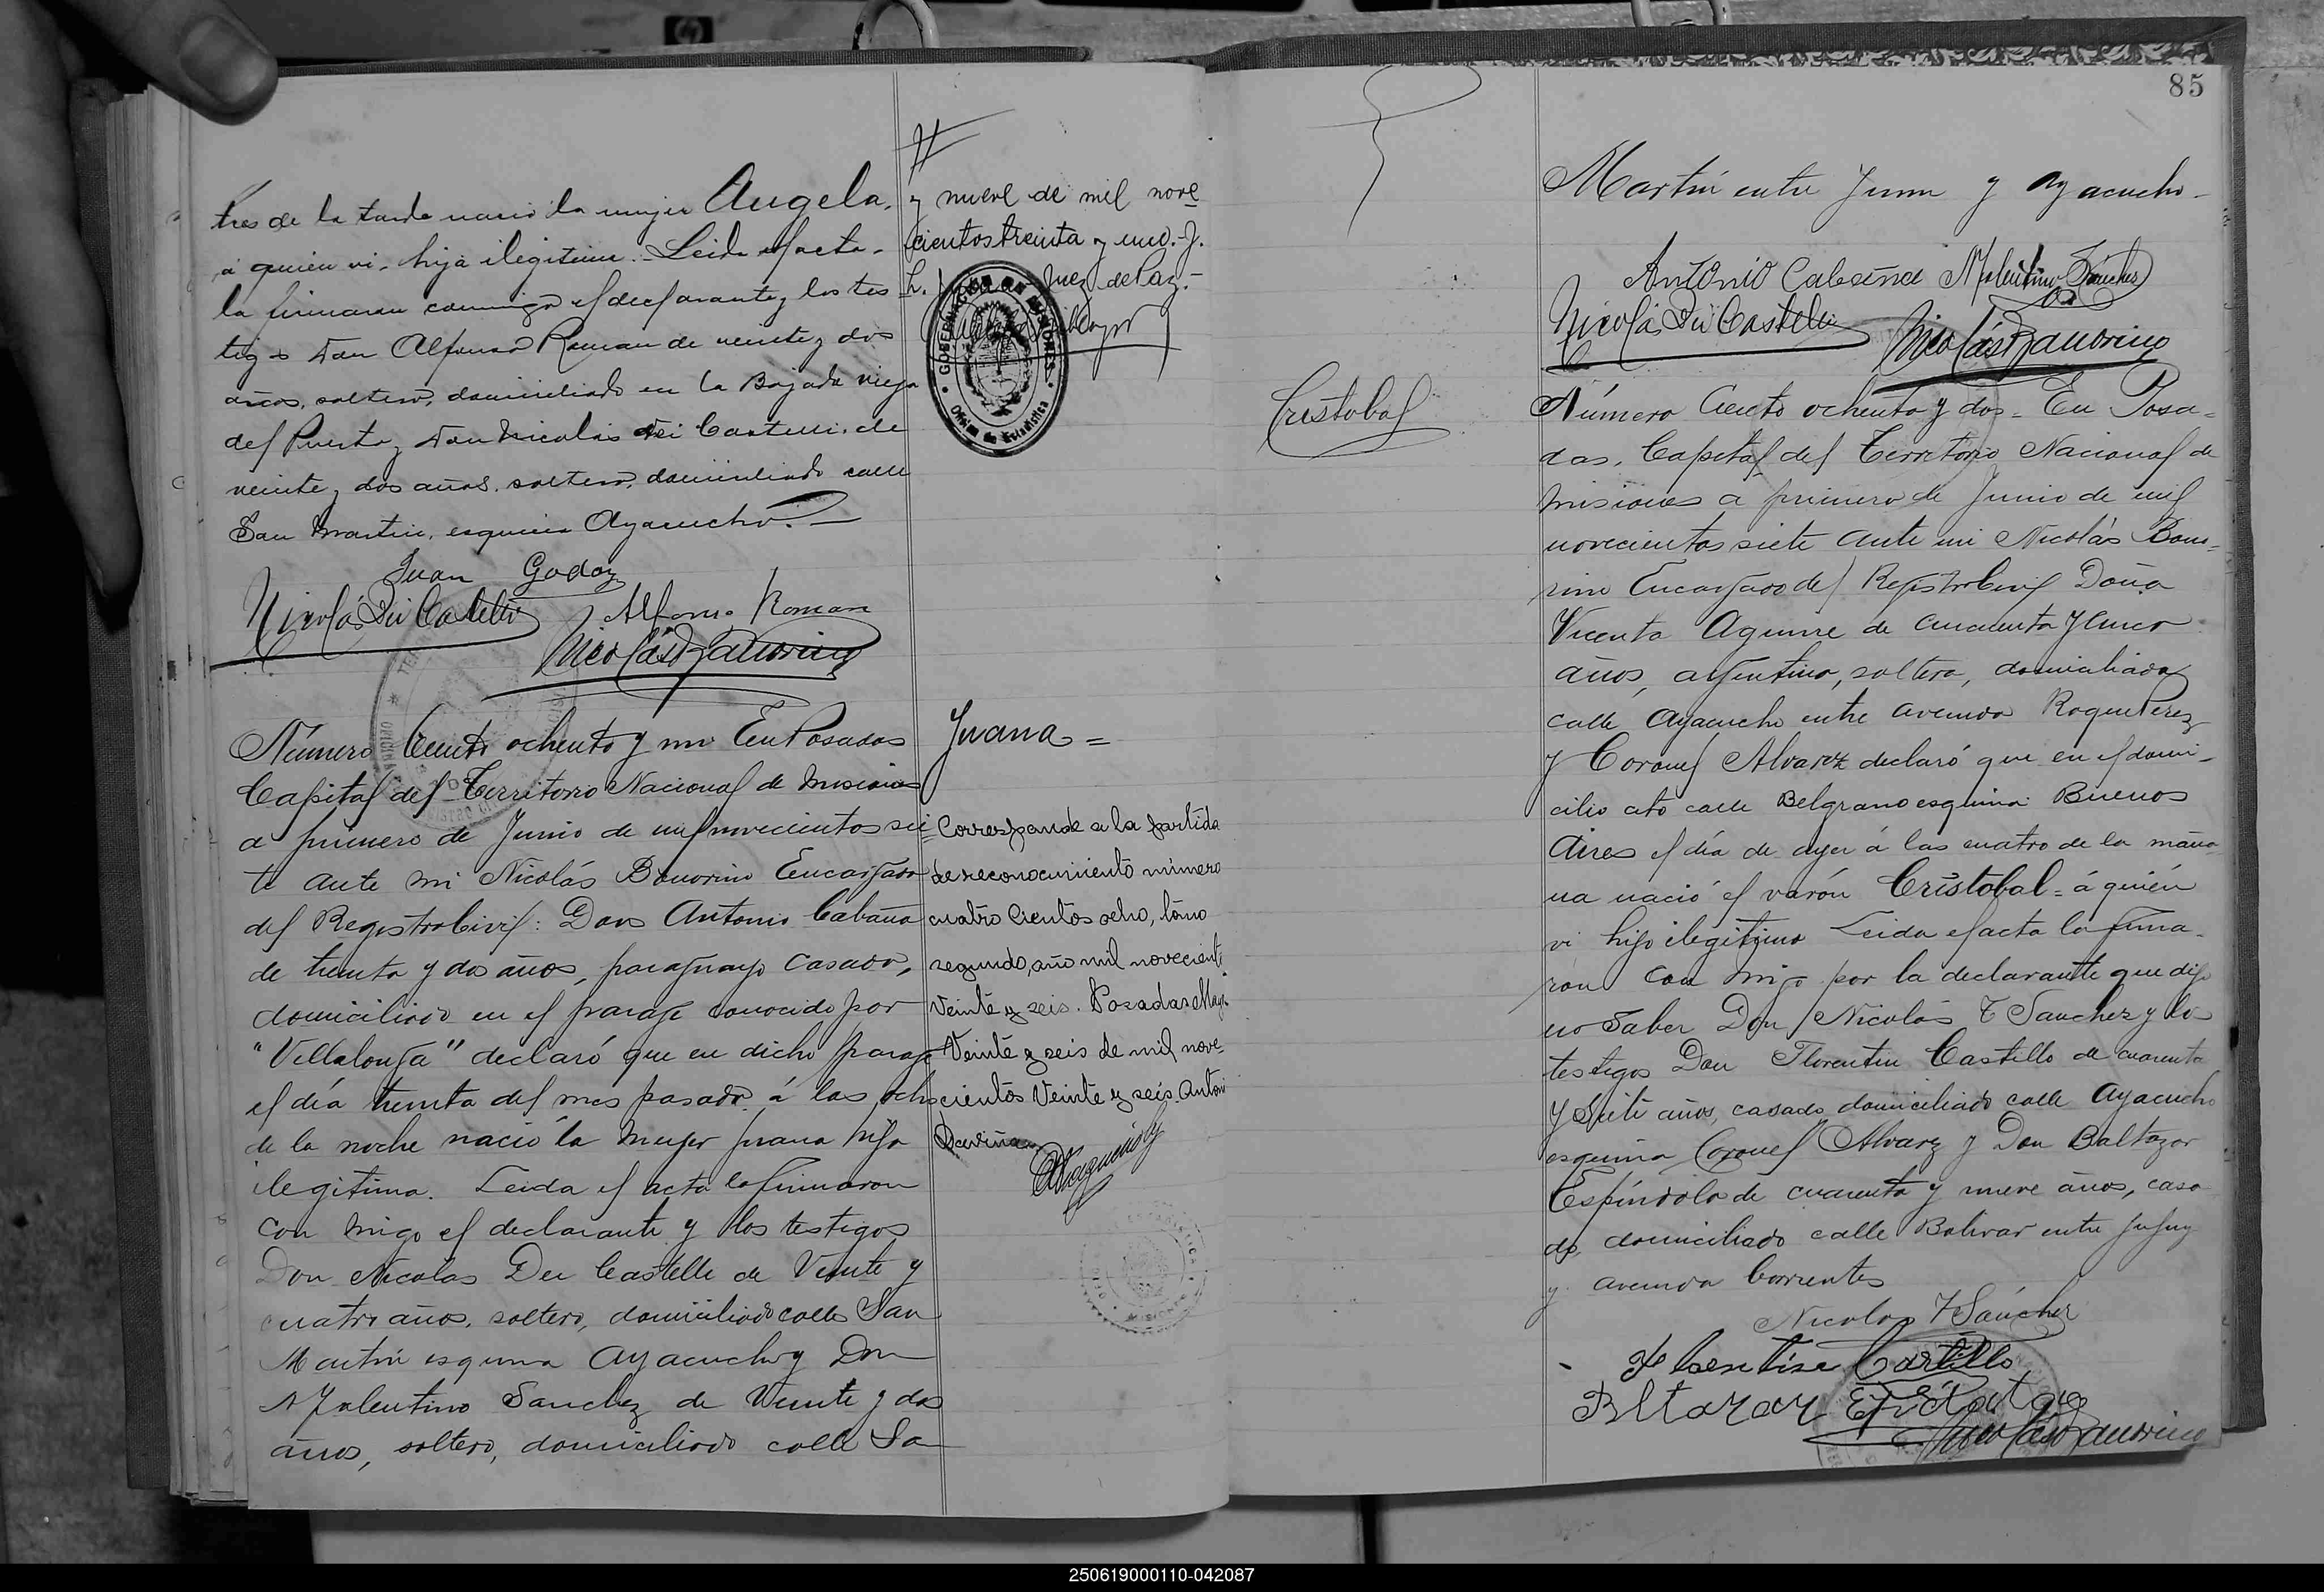 tres de la tarde nació la mujer Angela.
á quien vi, hija ilegitima. Leida el acta
la firmaron conmigo el declarante y los tes
tigos Don Alfonso Roman de veinte y dos
años, soltero, domiciliado en la Bajada vieja
del Puerto y Don Nicolás Dei Castelli, de
veinte y dos años, soltero, domiciliado calle
San Martin, esquina Ayacucho.
Juan Godoy
Nicolás Dei Castelli Alfonso Roman
Nicolás Bonorino
y nueve de mil nove
cientos treinta y uno.- J.
L. Juez de Paz.-
GOBERNACION DE MISIONES
Oficina de Estadística
Número Ciento ochenta y un En Posadas
Capital del Territorio Nacional de Misiones
a primero de Junio de mil novecientos sie
te ante mi Nicolás Bonorino Encargado
del Registro Civil: Don Antonio Cabaña
de treinta y dos años, paraguayo casado,
domiciliado en el paraje conocido por
"Villalonga" declaró que en dicho paraje
el día treinta del mes pasado á las ocho
de la noche nació la mujer Juana hija
ilegitima. Leida el acta la firmaron
con migo el declarante y los testigos
Don Nicolas Dei Castelli de Veinte y
cuatro años, soltero, domiciliado calle San
Martin esquina Ayacucho y Don
N Valentino Sanchez de Veinte y dos
años, soltero, domiciliado calle Sa
Juana =
Corresponde a la partida
de reconocimiento número
cuatro cientos ocho, tomo
segundo, año mil novecient
Veinte y seis. Posadas Mayo
Veinte y seis de mil nove-
cientos Veinte y seis. Antoni
85
Martin entre Junin y Ayacucho-
Antonio Cabaña N Valentino Sánchez
Nicolás Dei Castelli Nicolás Bonorino
Cristobal
Número Ciento ochenta y dos - En Posa-
das, Capital del Territorio Nacional de
Misiones a primero de Junio de mil
novecientos siete ante mi Nicolás Bono-
rino Encargado del Registro Civil Doña
Vicenta Aguirre de cincuenta y cinco
años, argentina, soltera, domiciliada
calle Ayacucho entre Avenida Roque Perez
y Coronel Alvarez declaró que en el domi-
cilio sito calle Belgrano esquina Buenos
Aires el día de ayer á las cuatro de la maña-
na nació el varón Cristobal = á quién
vi hijo ilegitimo Leida el acta la firma-
ron con migo por la declarante que dijo
no Saber Don Nicolás T Sanchez y los
testigos Don Florentin Castillo de cuarenta
y Siete años, casado domiciliado calle Ayacucho
esquina Coronel Alvarez y Don Baltazar
Espíndola de cuarenta y nueve años, casa
do, domiciliado calle Bolivar entre Jujuy
y avenida Corrientes
Nicolas T Sánchez
Castillo
Nicolás Bonorino
250619000110-042087